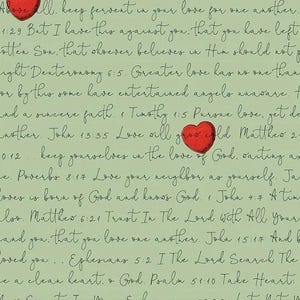 Above all, keep fervent in your love for one ano
1:29 But I have this against you, that you have left
otten Son, that whoever believes in Him should not p
ight Deuteronomy 6:5 Greater love has no one than
or by this some have entertained angels unaware H
and a sincere faith. 1 Timothy 1:5 Pursue love, yet de
nother. John 13:35 Love will grow cold Matthew 2
0:12 ... keep yourselves in the love of God, waiting an
e. Proverbs 8:17 Love your neighbor as yourself. Ja
loves is born of God and knows God. 1 John 4:7 A tim
lso. Matthew 6:21 Trust In The Lord with All Your
and you, that you love one another. John 15:17 And b
loved you ... Ephesians 5:2 I The Lord Search The
e a clean heart, o God. Psalm 51:10 Take Heart,